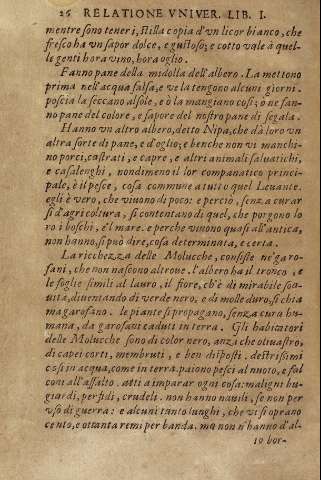 26 RELATIONE VNIVER. LIB. I.
mentre sono teneri, stilla copia d'vn licor bianco, che
fresco ha vn sapor dolce, e gustoso; e cotto vale à quel-
le genti hora vino, hora oglio.
Fanno pane della midolla dell'albero. La mettono
prima nell'acqua salsa, e ve la tengono alcuni giorni.
poscia la seccano al sole, e ò la mangiano così; ò ne fan-
no pane del colore, e sapore del nostro pane di segala.
Hanno vn altro albero, detto Nipa, che dà loro vn
altra sorte di pane, e d'oglio; e benche non vi manchi-
no porci, castrati, e capre, e altri animali saluatichi,
e casalenghi, nondimeno il lor companatico princi-
pale, è il pesce, cosa commune a tutto quel Leuante.
egli è vero, che viuono di poco: e perciò, senza curar
si d'agricoltura, si contentano di quel, che porgono lo
ro i boschi, e'l mare. e perche viuono quasi all'antica,
non hanno, si può dire, cosa determinata, e certa.
La ricchezza delle Molucche, consiste ne' garo-
fani, che non nascono altroue. l'albero ha il tronco, e
le foglie simili al lauro, il fiore, ch'è di mirabile soa-
uità, diuentando di verde nero, e di molle duro, si chia
ma garofano. le piante si propagano, senza cura hu-
mana, da garofani caduti in terra. Gli habitatori
delle Molucche sono di color nero, anzi che oliuastro,
di capei corti, membruti, e ben disposti. destrissimi
così in acqua, come in terra. paiono pesci al nuoto, e fal
coni all'assalto. atti a imparar ogni cosa: maligni bu-
giardi, perfidi, crudeli. non hanno nauili, se non per
vso di guerra: e alcuni tanto lunghi, che vi si oprano
cento, e ottanta remi per banda. ma non n'hanno d'al-
to bor-